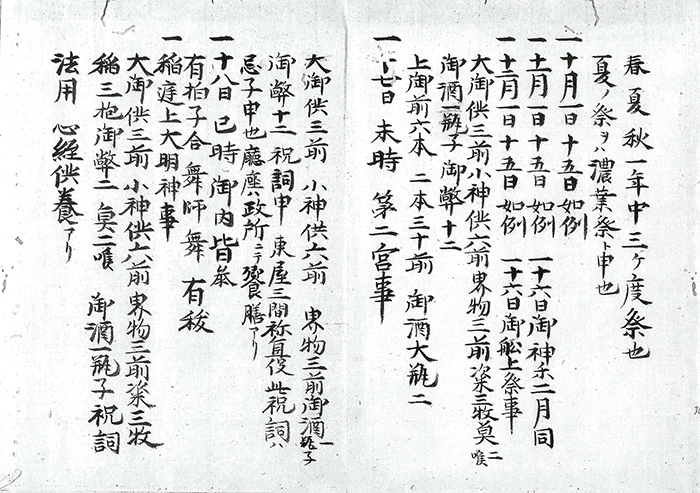 春夏秋一年中三ケ度祭也
夏ノ祭ヲハ濃業祭ト申也
一十月一日十五日如例
一十一月一日十五日如例 一十六日御神楽二月同
一十二月一日十五日如例 一十六日御船上祭事
大御供三前小神供六前畏物三前染三牧莫二喉
御酒一瓶子御弊十二
上御前六本二本三十前 御酒大瓶二
一十七日 未時 第二宮事
大御供三前 小神供六前 畏物三前御酒一瓶子
御弊十二祝詞申 東屋三間祢宜役此祝詞ハ
忌子申也廳塵ハ政所ニテ饗膳アリ
一十八日 巳時 御内皆参
有拍子合 舞師舞 有秡
一稲遅上大明神事
大御供三前 小神供六前 畏物三前染三牧
稲三抱御弊二 莫二喉 御酒一瓶子祝詞
法用 心経供養アリ